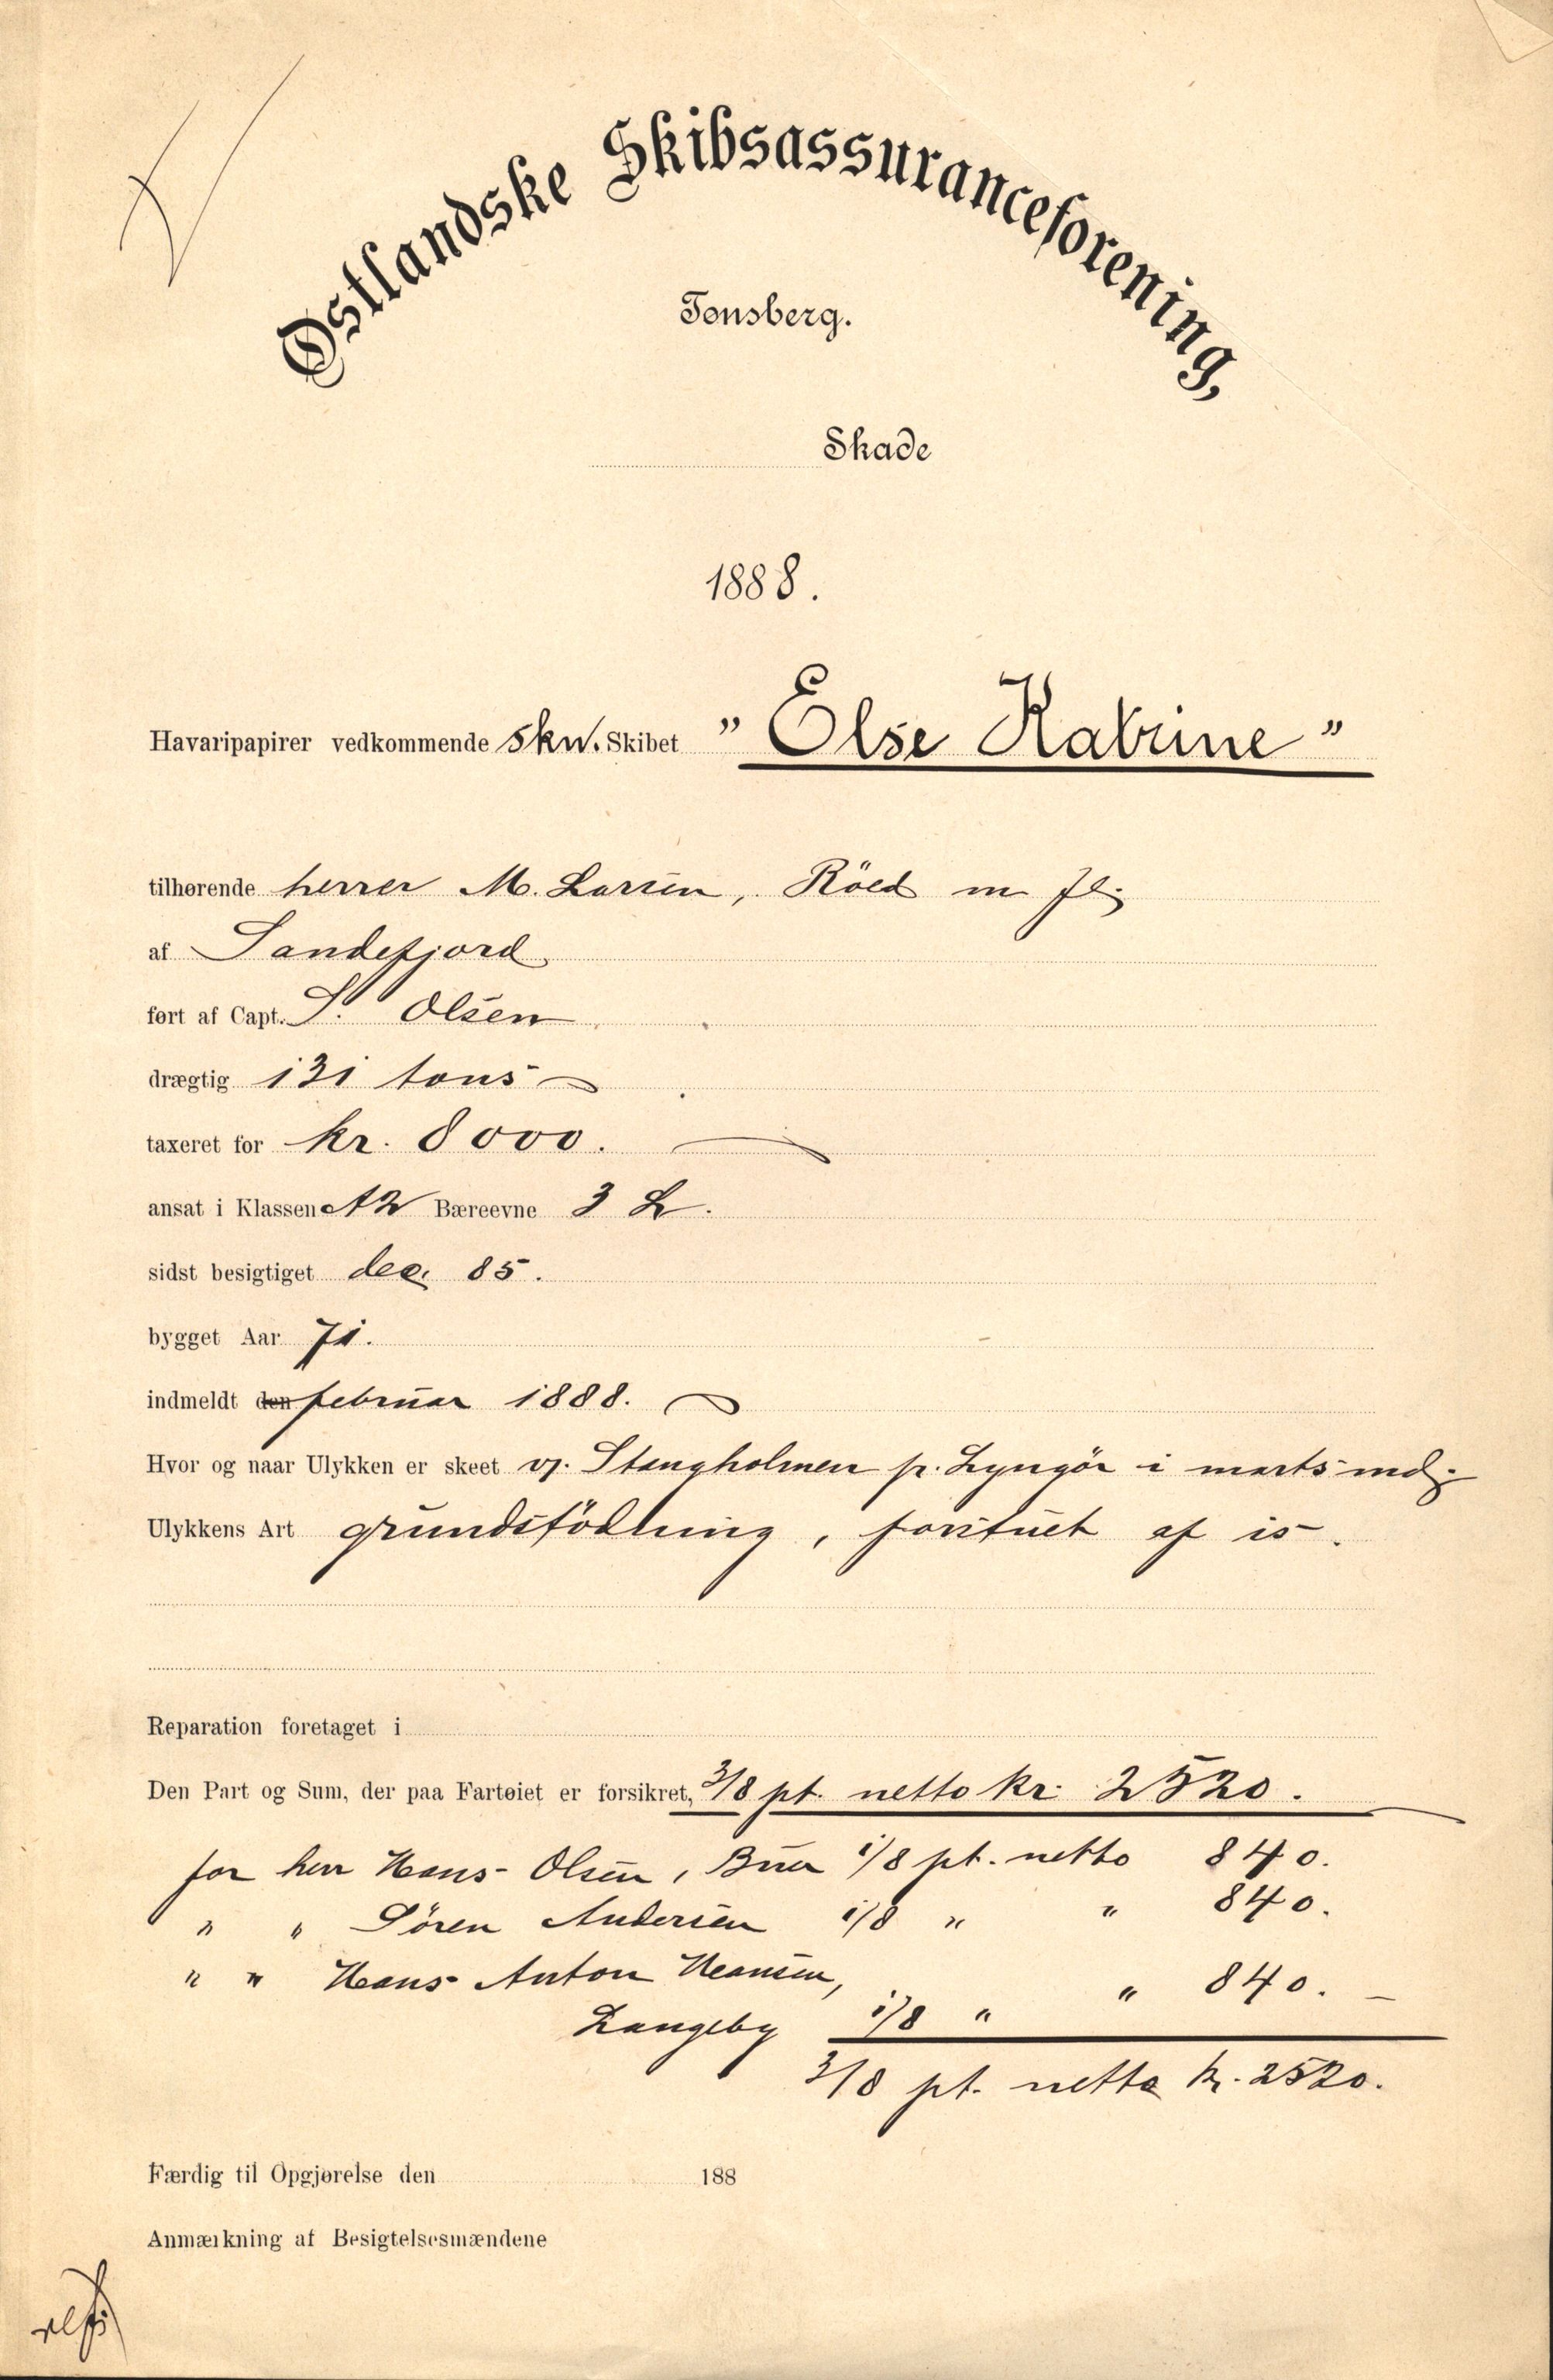 Østlandske Skibsassuranceforening,
Tønsberg.
Skade
1888.
Havaripapirer vedkommende Skn. Skibet "Else Katrine"
tilhørende herrer M. Larsen, Röed m fl.
af Sandefjord
ført af Capt. S. Olsen
drægtig 131 tons
taxeret for kr. 8000.
ansat i Klassen A2 Bæreevne 3 L.
sidst besigtiget dec. 85.
bygget Aar 71.
indmeldt den februar 1888.
Hvor og naar Ulykken er skeet v. Stangholmen p. Lyngör i marts md.
Ulykkens Art grundstödning, forstuet af is.
Reparation foretaget i
Den Part og Sum, der paa Fartøiet er forsikret, 3/8 pt. netto kr. 2520.
for herr Hans Olsen, Buer 1/8 pt. netto 840.
" " Sören Andersen 1/8 " " 840.
" " Hans Anton Hansen, " 840. –
Langeby 1/8 "
3/8 pt. netto kr. 2520.
Færdig til Opgjørelse den 188
Anmærkning af Besigtelsesmændene